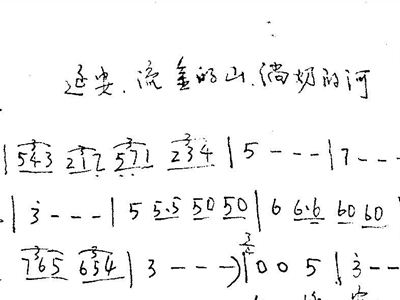 延安.流金的山.淌奶的河
| 543 217 571 234 | 5 - - - | 7 - - -
| 3 - - - | 5 5.5 50 50 | 6 6.6 60 60 |
765 654 | 3 - - - ) | 0 0 5 | 3 - -